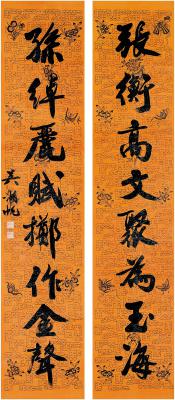 張衡高文聚為玉海
孫綽麗賦擲作金聲
吳湖帆